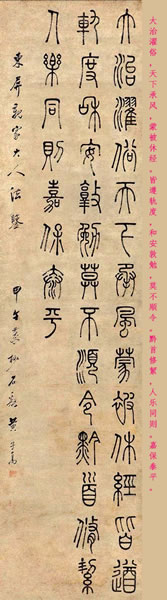 大治濯俗，天下承风，蒙被休经，皆遵轨度，和安敦勉，莫不顺令，黔首修絜，人乐同则，嘉保泰平。
大治濯俗天下承風蒙被休經皆遵
軌度和安敦勉莫不順令黔首脩絜
人樂同則嘉保泰平
東屏親家大人法鑒 甲午春杪石谿黃子高